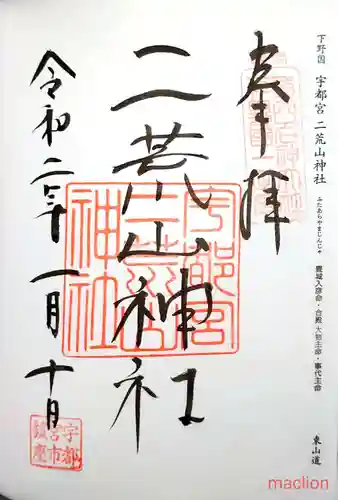 下野国 宇都宮 二荒山神社
ふたあらやまじんじゃ
豊城入彦命・合殿 大物主命・事代主命
東山道
奉拝
二荒山神社
令和二年一月十日
宇都宮
二荒山
神社
宇都
宮市
鎮座
maclion